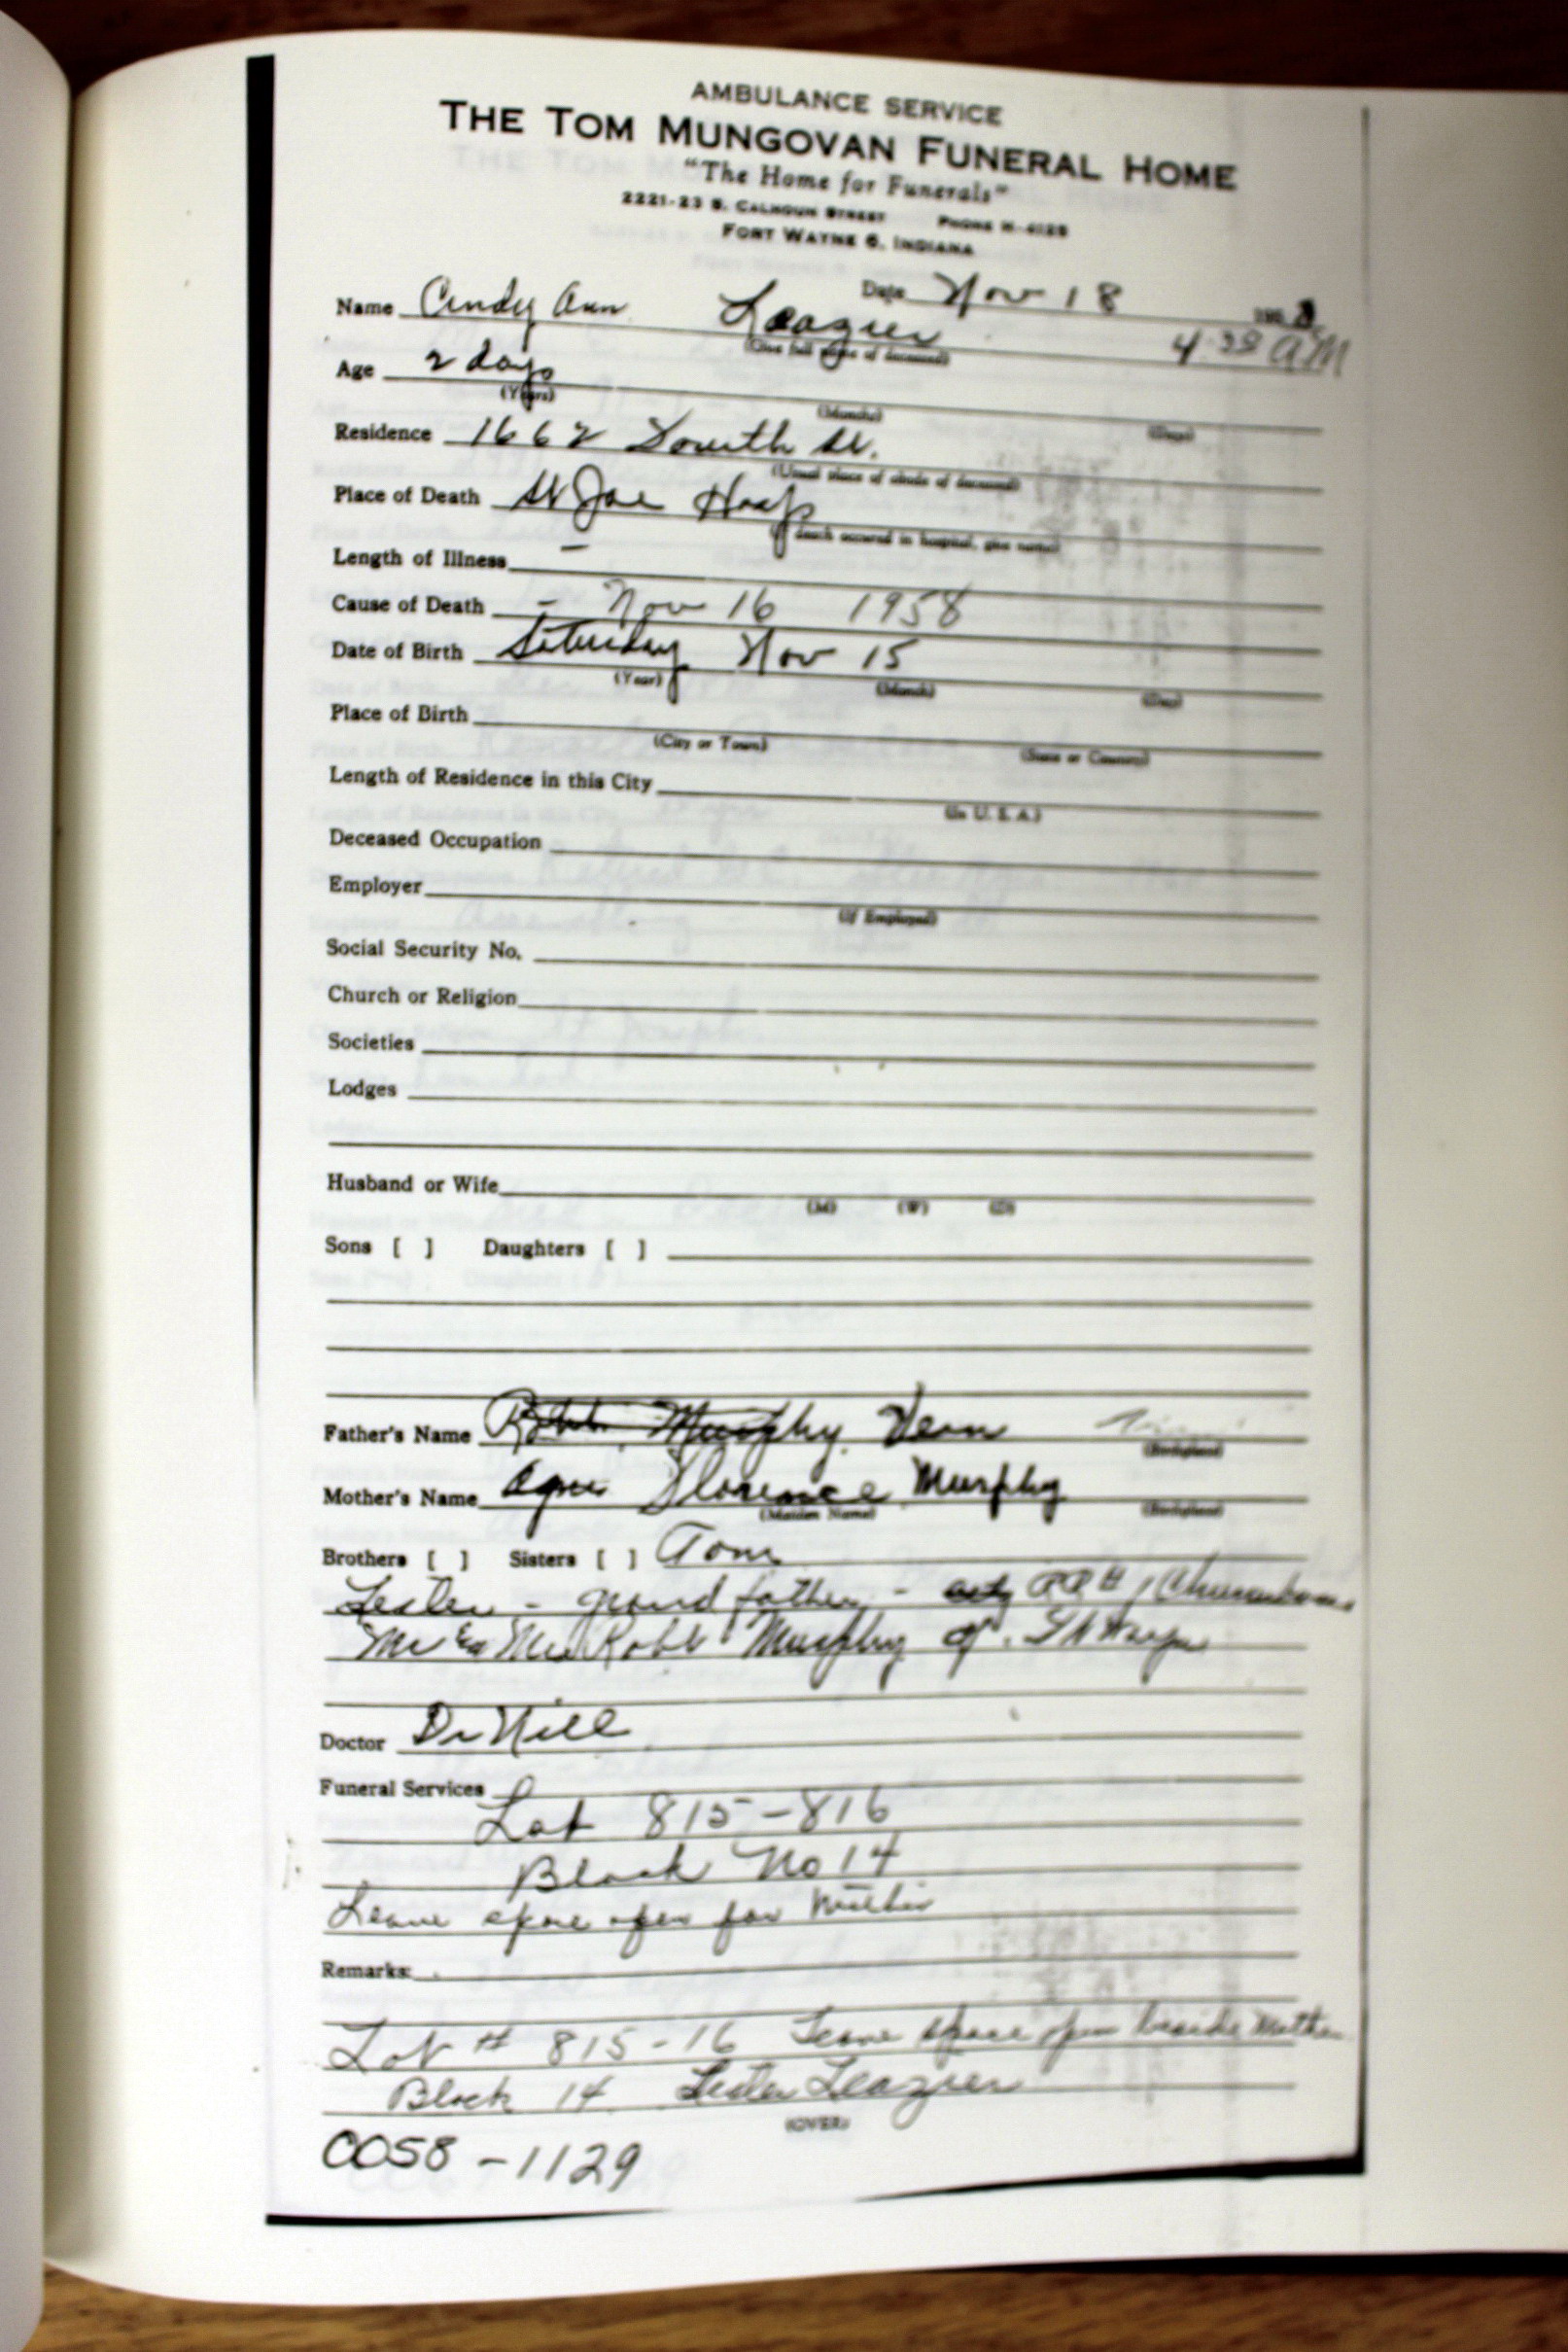 AMBULANCE SERVICE
THE TOM MUNGOVAN FUNERAL HOME
"The Home for Funerals"
2221-23 S. CALHOUN STREET PHONE H-4128
FORT WAYNE 6, INDIANA
Date Nov 18 1958
Name Cindy Ann Leazier 4:38 AM
(Give full name of deceased)
Age 2 days
(Years) (Months) (Days)
Residence 1662 Fourth St.
(Usual place of abode of deceased)
Place of Death St Joe Hosp
(If death occured in hospital, give name)
Length of Illness -
Cause of Death - Nov 16 1958
Date of Birth Saturday Nov 15
(Year) (Month) (Day)
Place of Birth
(City or Town) (State or Country)
Length of Residence in this City
(In U. S. A.)
Deceased Occupation
Employer
(If Employed)
Social Security No.
Church or Religion
Societies
Lodges
Husband or Wife
(M) (W) (D)
Sons [ ] Daughters [ ]
Father's Name Robt. Murphy Vern
(Birthplace)
Mother's Name Agnes Florence Murphy
(Maiden Name) (Birthplace)
Brothers [ ] Sisters [ ] Tom
Lester - grand father - RR #1 Churubusco
Mr & Mrs Robt Murphy of Ft Wayne
Doctor Dr Hill
Funeral Services
Lot 815-816
Block No 14
Leave space open for Mother
Remarks:
Lot # 815-16 Leave space open beside Mother
Block 14 Lester Leazier
(OVER)
CO58-1129